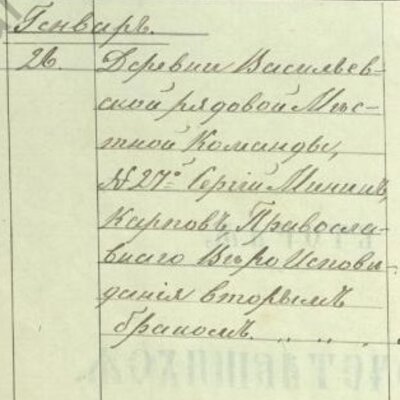 Генварь.
26. Деревни Васильев-
ской рядовой Мѣс-
тной Команды,
№ 27го Сергій Мининъ
Карповъ Правосла-
внаго Вѣроисповѣ-
данія вторымъ
бракомъ.